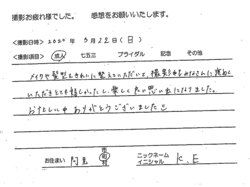 撮影お疲れ様でした。 感想をお願いいたします。
<撮影日時> 2020年 3月22日(日)
<撮影項目> 成人 七五三 ブライダル 記念 その他
メイクや髪型もきれいに整えていただいて、撮影もみなさんに
いただきとても楽しかったし、楽しく思い出になりました。
ありがとうございました
お住まい 市 町 村
ニックネーム
イニシャル K.E